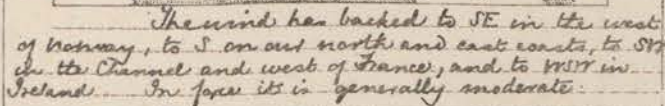 The wind has backed to SE in the west
of Norway, to S on our north and east coasts, to SW
in the Channel and west of France, and to WSW in
Ireland. In force its is generally moderate.